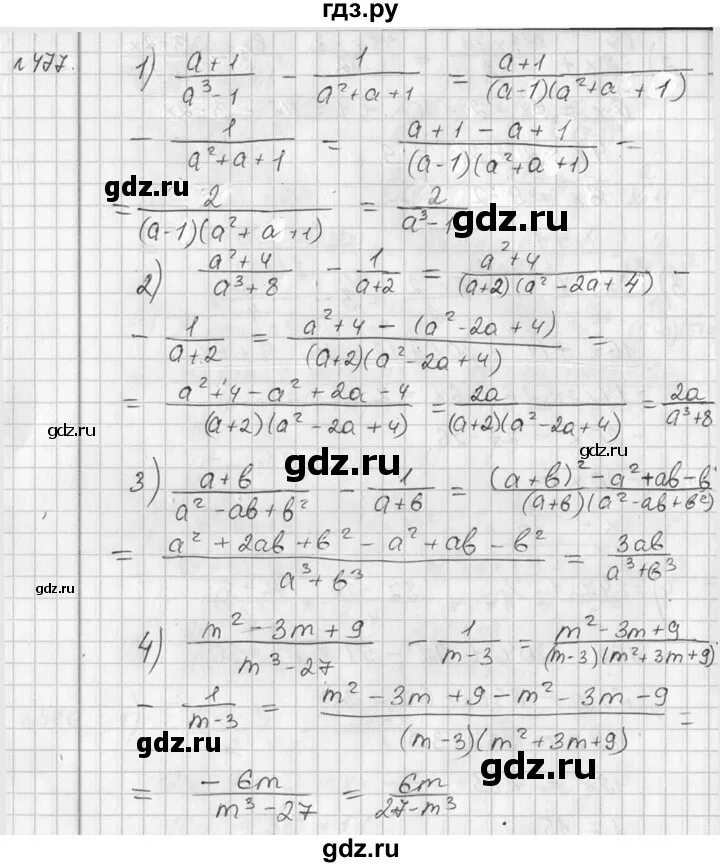 гдз.ру
№477. 1) (a+1)/(a³-1) - 1/(a²+a+1) = (a+1)/((a-1)(a²+a+1))
- 1/(a²+a+1) = (a+1-a+1)/((a-1)(a²+a+1)) =
gdz.ru
= 2/((a-1)(a²+a+1)) = 2/(a³-1)
gdz.ru
2) (a²+4)/(a³+8) - 1/(a+2) = (a²+4)/((a+2)(a²-2a+4)) -
- 1/(a+2) = (a²+4-(a²-2a+4))/((a+2)(a²-2a+4)) =
= (a²+4-a²+2a-4)/((a+2)(a²-2a+4)) = 2a/((a+2)(a²-2a+4)) = 2a/(a³+8)
gdz.ru
gdz.ru
gdz.ru
3) (a+b)/(a²-ab+b²) - 1/(a+b) = ((a+b)²-a²+ab-b²)/((a+b)(a²-ab+b²))
= (a²+2ab+b²-a²+ab-b²)/(a³+b³) = 3ab/(a³+b³)
gdz.ru
4) (m²-3m+9)/(m³-27) - 1/(m-3) = (m²-3m+9)/((m-3)(m²+3m+9))
gdz.ru
- 1/(m-3) = (m²-3m+9-m²-3m-9)/((m-3)(m²+3m+9)) =
gdz.ru
gdz.ru
= -6m/(m³-27) = 6m/(27-m³)
гдз.ру